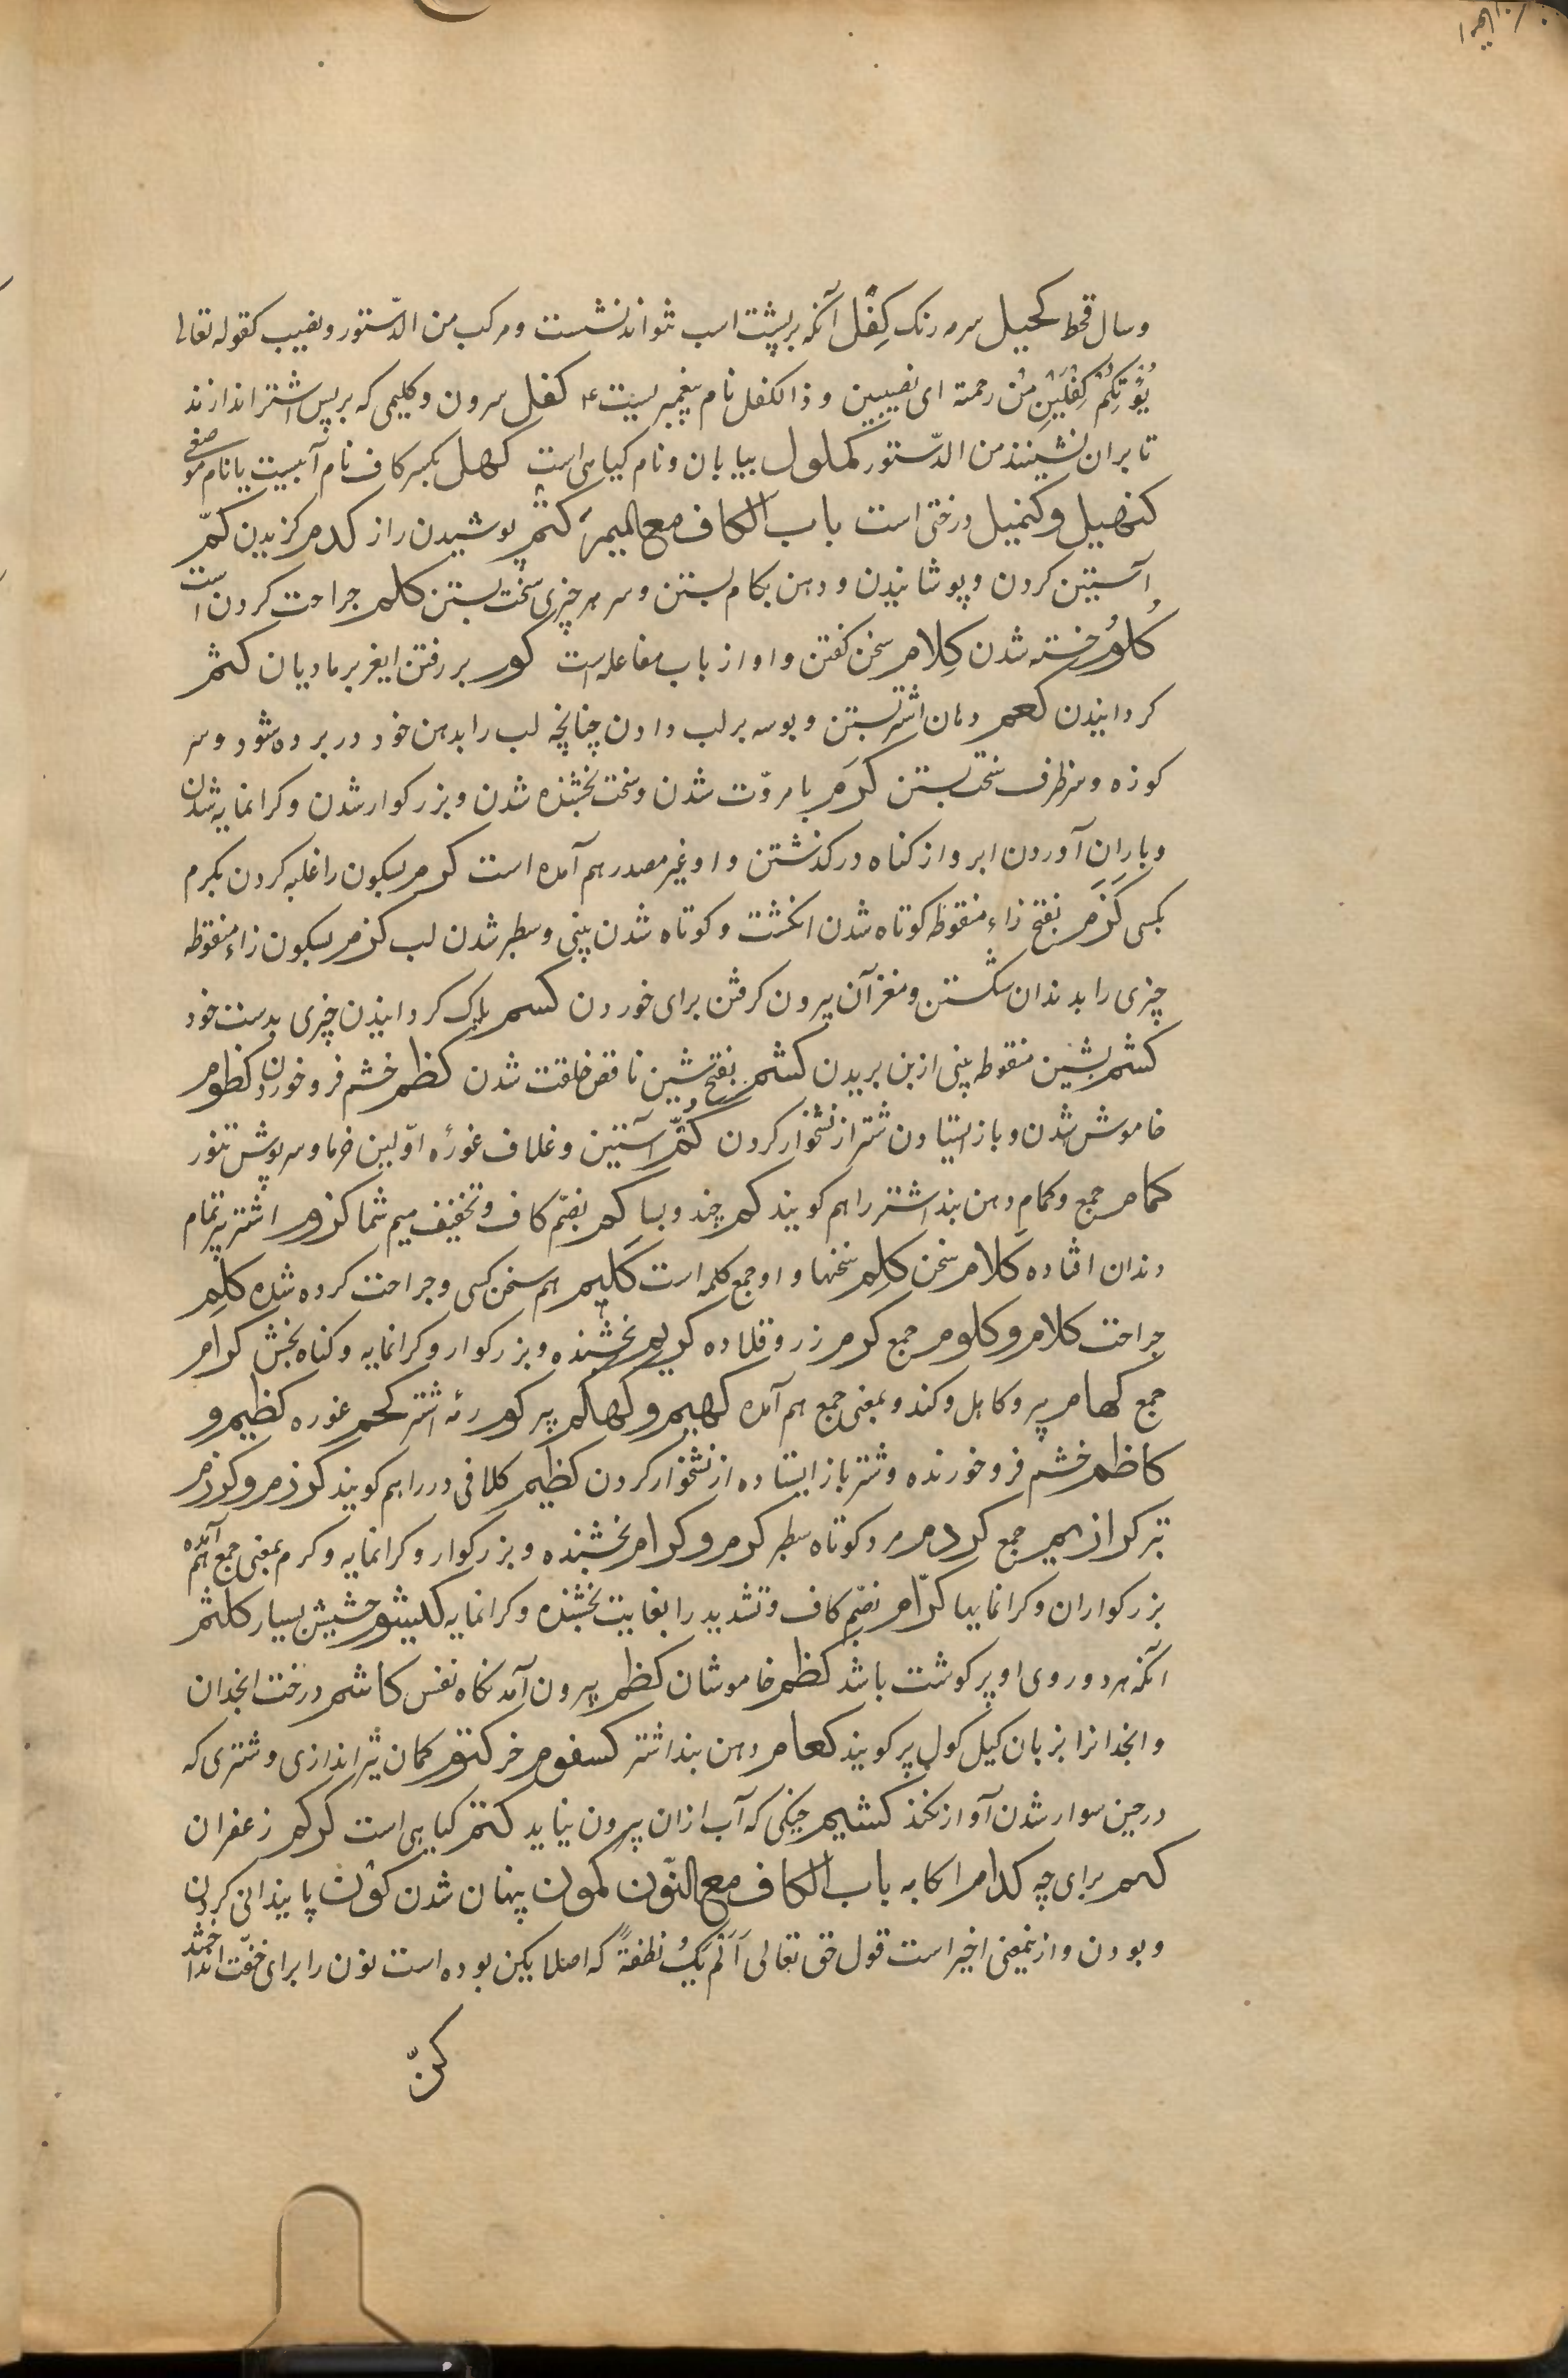 و سال قحط کحیل سرمه رنک کِفْل آنکه بر پشت اسب نتواند نشست و مرکب من الدّستور و نصیب کقوله تعالی
یُؤْتِکُمْ کِفْلَیْنِ مِنْ رحمته ای نصیبین و ذا لکفل نام پیغمبریست ع کفل سرون و کلیمی که بر پس اشتر اندازند
تا بران نشینند من الدّستور کملول بیابان و نام کیاهی است کهل بکسر کاف نام آبیست یا نام موضعی
کنهبل و کنمیل درختی است باب الکاف مع المیم کتم پوشیدن راز کدم کزیدن کمّ
آستین کردن و پوشانیدن و دهن بکام بستن و سر هر چیزی سخت بستن کلم جراحت کردن است
کلوم خسته شدن کِلام سخن کفتن و او از باب مفاعله است کوم بر رفتن ایغر بر مادیان کثم
کردانیدن کعم دهان اشتر بستن و بوسه بر لب دادن چنانچه لب را بدهن خود در برده شود و سر
کوزه و سر ظرف سخت بستن کَرَم با مروّت شدن و سخت بخشنده شدن و بزرکوار شدن و کرانمایه شدن
و باران آوردن ابر و از کناه در کذشتن و او غیر مصدر هم آمده است کرم بسکون را غلبه کردن بکرم
بکسی کَزَم بفتح زاء منقوطه کوتاه شدن انکشت و کوتاه شدن بینی و سطبر شدن لب کزم بسکون زاء منقوطه
چیزی را بدندان شکستن و مغز آن بیرون کرفتن برای خوردن کسم پاک کردانیدن چیزی بدست خود
کشم بشین منقوطه بینی از بن بریدن کشم بفتح شین ناقص خلقت شدن کظم خشم فرو خوردن کظوم
خاموش شدن و باز ایستادن شتر از نشخوار کردن کُمّ آستین و غلاف غورهٔ اوّلین خرما و سرپوش تنور
کمام جمع و کمام دهن بند اشتر را هم کویند کم چند و بسا کم بضمّ کاف و تخفیف میم شما کزوم اشتر پیر تمام
دندان افتاده کَلام سخن کَلِم سخنها و او جمع کلمه است کَلیم هم سخن کسی و جراحت کرده شده کلم
جراحت کلام و کلوم جمع کرم رز و قلاده کریم بخشنده و بزرکوار و کرانمایه و کناه بخش کرام
جمع کهام پیر و کاهل و کند و بمعنی جمع هم آمده کهیم و کهکم پیر کوم رمهٔ اشتر کحم غوره کظیم و
کاظم خشم فرو خورنده و شتر باز ایستاده از نشخوار کردن کظیم کلافی در را هم کویند کوزم و کوزم
تبر کرازیم جمع کردم مرد کوتاه سطبر کرم و کرام بخشنده و بزرکوار و کرانمایه و کرم بمعنی جمع هم آمده
بزرکواران و کرانمایها کرّام بضمّ کاف و تشدید را بغایت بخشنده و کرانمایه کیشوم حشیش بسیار کلثم
آنکه هر دو روی او پر کوشت باشد کظم خاموشان کظم بیرون آمدنکاه نفس کاشم درخت انجدان
و انجدانرا بزبان کیل کول پر کویند کعام دهن بند اشتر کسفوم خر کتوم کمان تیر اندازی و شتری که
در حین سوار شدن آواز نکند کشیم خیکی که آب ازان بیرون نیاید کتم کیاهی است کرکم زعفران
کهم برای چه کدام اکابه باب الکاف مع النّون کمون پنهان شدن کون پایندانی کردن
و بودن و از بمعنی اخیر است قول حق تعالی اَلَمْ یَکُ نطفةً که اصلا یکن بوده است نون را برای خفّت انداختند
کنّ